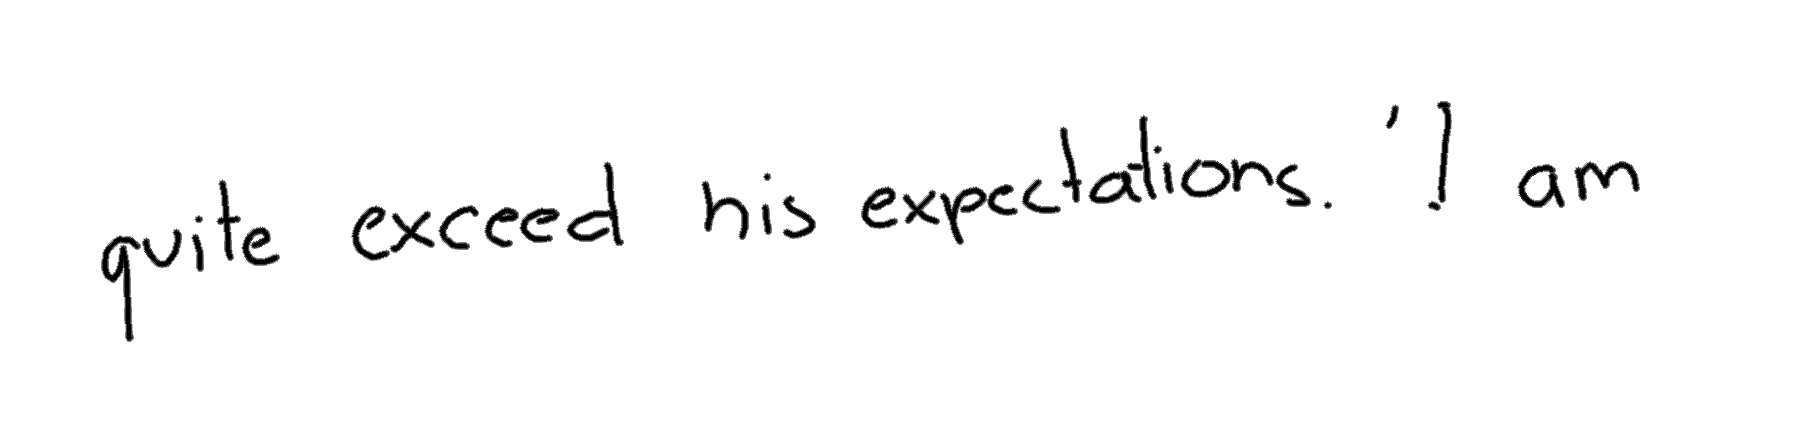 quite exceed his expectations. 'I am